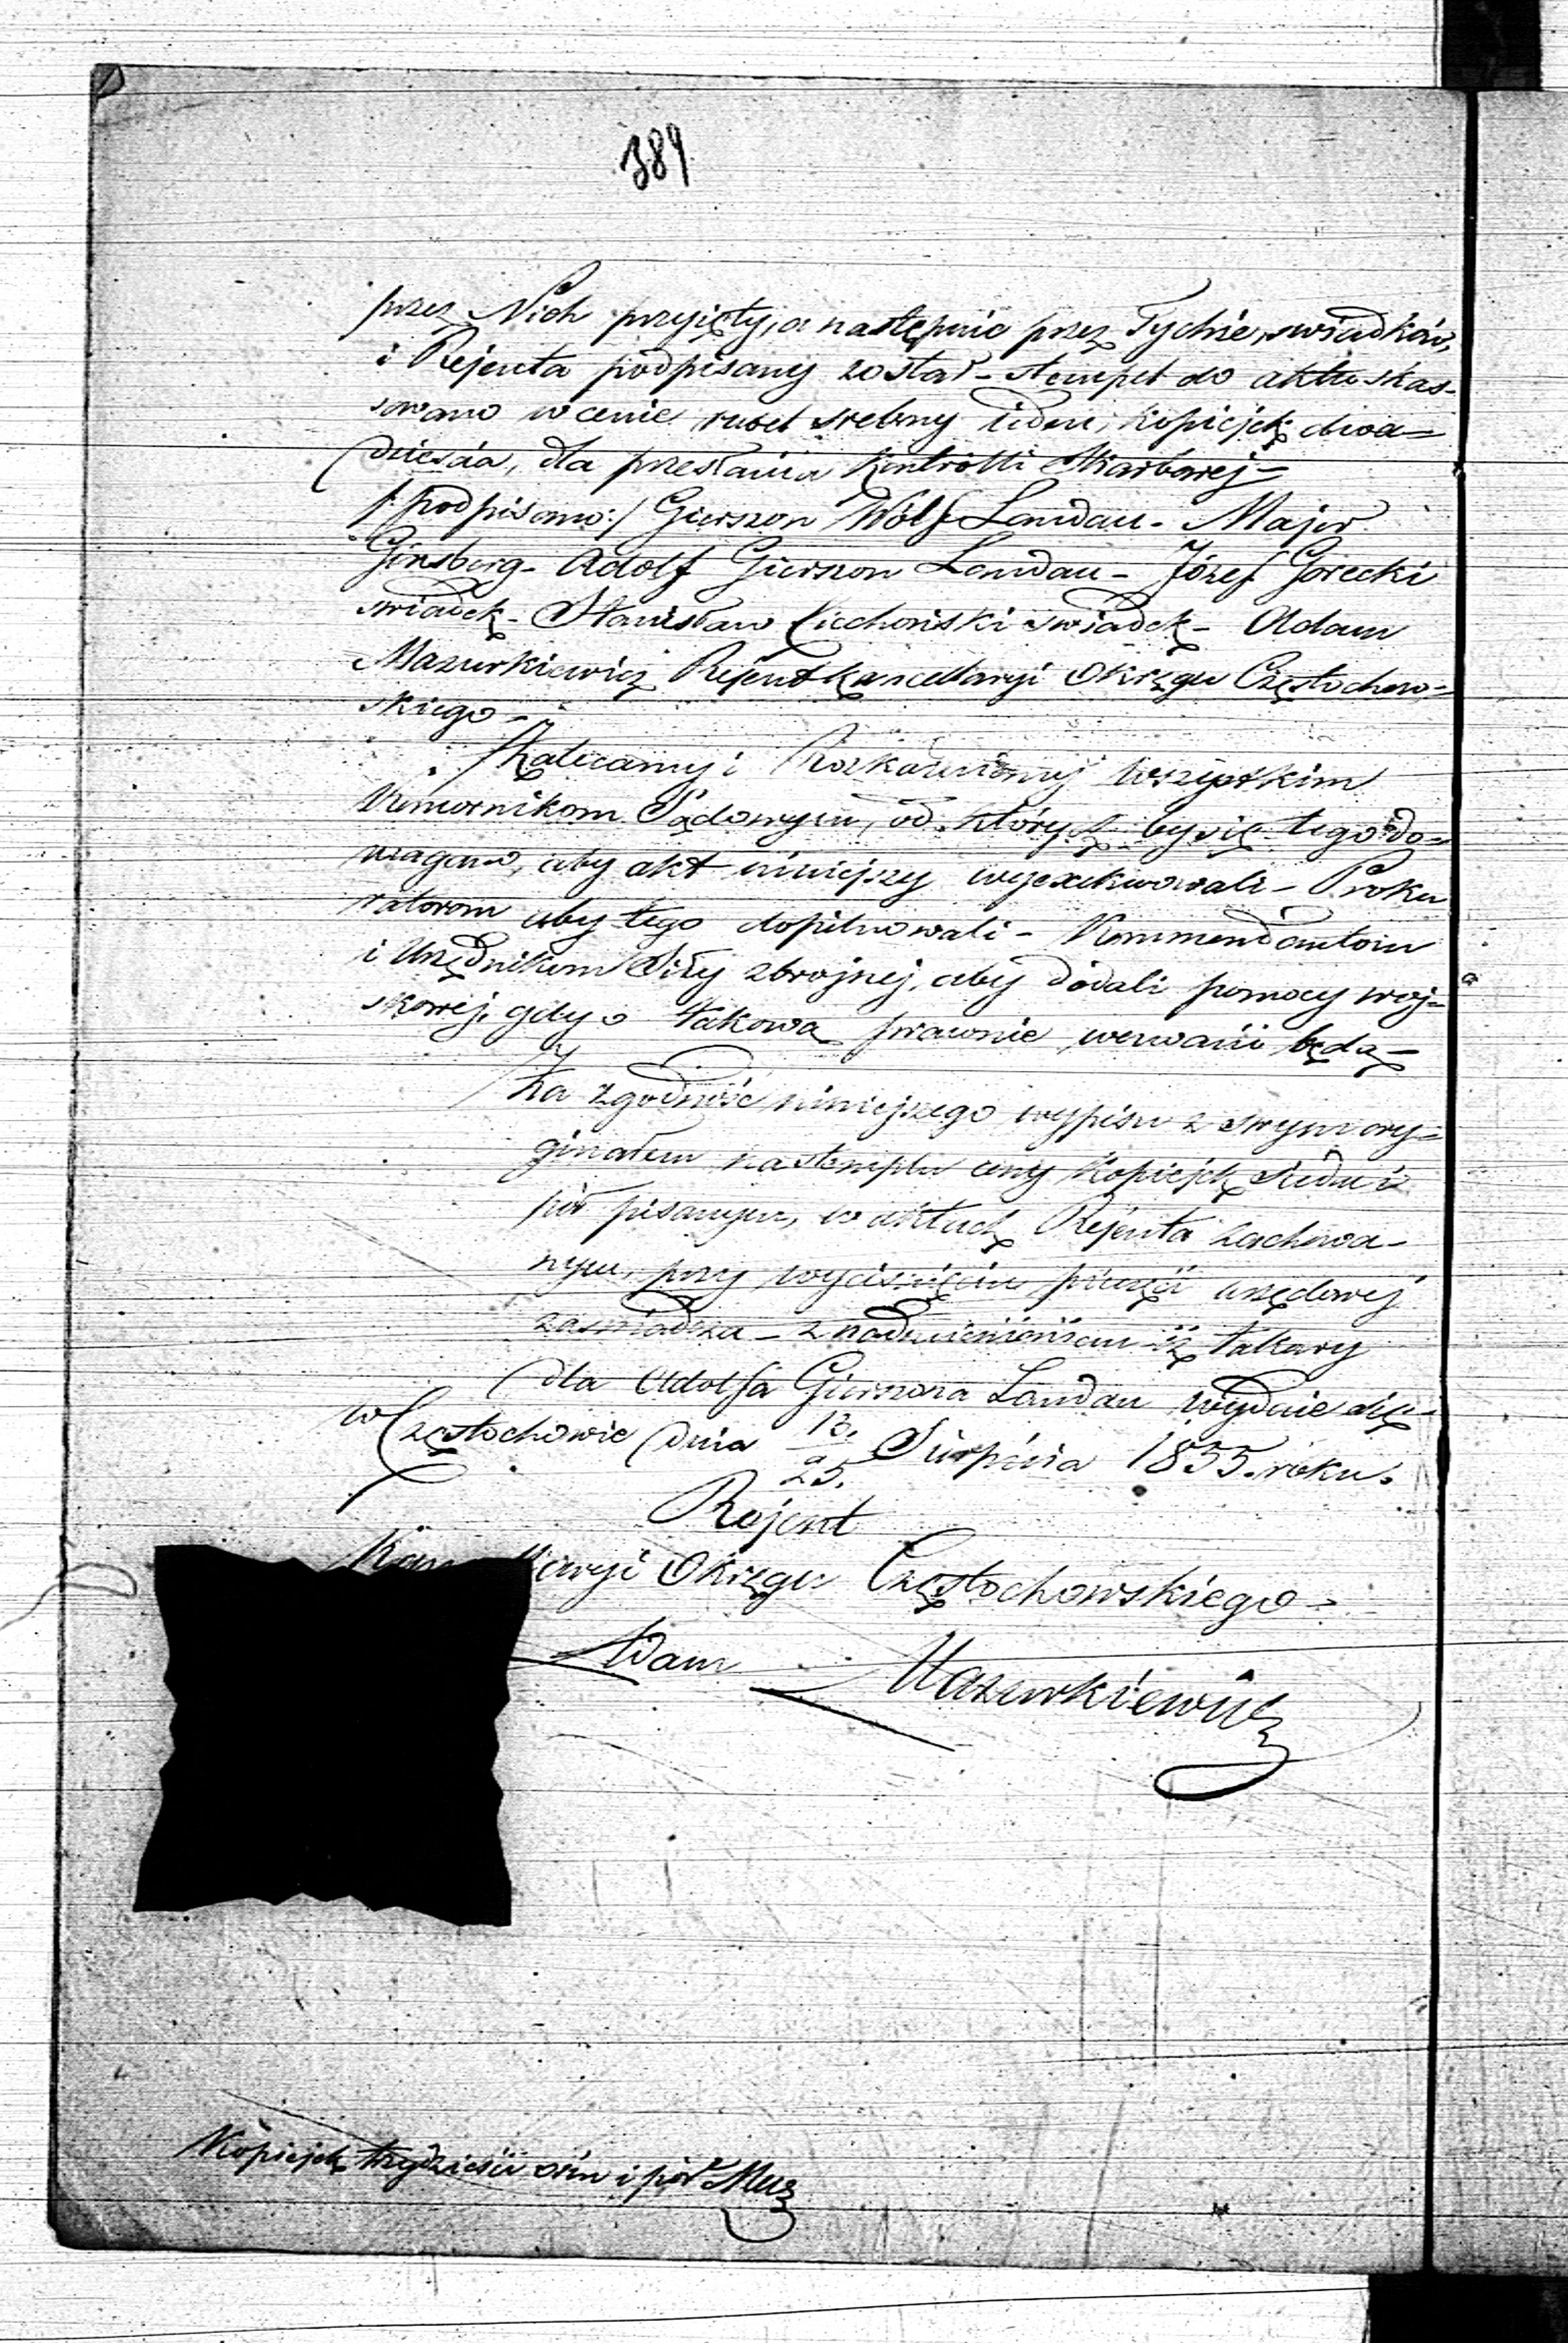 384
przez Nich przyięty, a następnie przez Tychże, swiadków,
i Rejenta podpisany został – stempel do aktu skas-
sowano w cenie rubel srebrny ieden, kopiejek dwa-
dzieścia, dla przesłania Kontrolli Skarbowej –
/: podpisano :/ Gierszon Wolf Landau – Majer
Ginsberg – Adolf Gierszon Landau – Józef Gorecki
swiadek – Stanisław Ciechoński swiadek – Adam
Mazurkiewicz Rejent Kancellaryi Okręgu Częstochow-
skiego –
Zalecamy i Rozkazuiemy wszystkim
Komornikom Sądowym, od których by się tego do-
magano, aby akt niniejszy wyexekwowali – Proku
ratorom aby tego dopilnowali – Kommendantom
i Urzędnikom Siły zbrojnej, aby dodali pomocy woj-
skowej, gdy o takową prawnie wezwani będą –
Za zgodność niniejszego wypisu z swym ory-
ginałem na stemplu ceny kopiejek siedm i
pół pisanym, w aktach Rejenta zachowa-
nym, przy wyciśnięciu pieczęci urzędowej
zaswiadcza – z nadmienieniem iż takowy
dla Adolfa Gierszona Landau wydaie się
w Częstochowie dnia 13./25. Sierpnia 1855. roku.
Rejent
Kan llaryi Okręgu Częstochowskiego –
Adam Mazurkiewicz
Kopiejek trzydzieści ośm i pół Maz